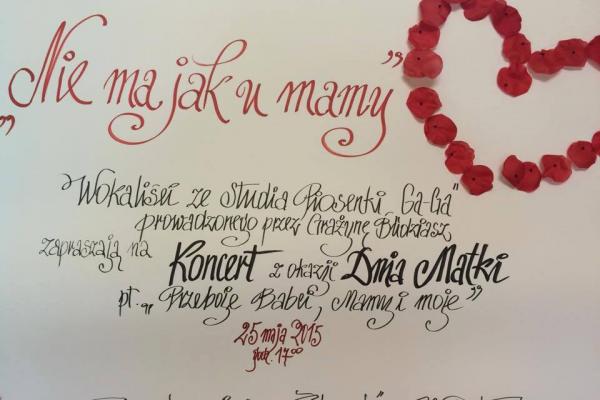 „Nie ma jak u mamy”
Wokaliści ze Studia Piosenki Ga-Ga"
prowadzonego przez Grażynę
zapraszają na Koncert z okazji Dnia Matki
pt. „Przeboje Babci, Mamy i moje”
25 maja 2015
godz. 17⁰⁰